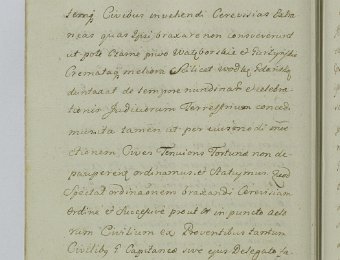 Civibus invehendi Cerevisias Extra
neas quas Ipsi braxare non consueverunt
ut pote Czarne piwo
Crematq meliora Scilicet Wodkę Gdańskę
duntaxat de tempore nundinar et celebra
tionis Judiciorum Terrestrium concedi
tamen ut per
ctionem Cives Tenuioris Fortunæ non de
pauperent ordinamus et Statuimus Quod
Spectat ordinaōnem braxandi Cerevisiam
Ordine et Successive prout et in puncto acto
rum Civilium ex Proventibus tantum
Capitaneo sive ejus Delegato